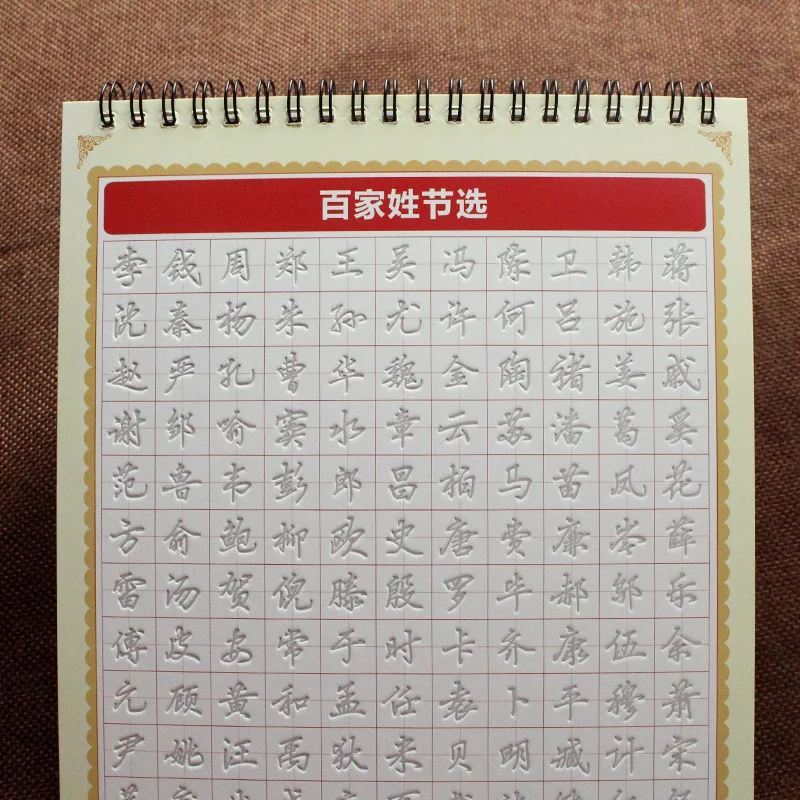 百家姓节选
李钱周郑王吴冯陈卫韩蒋
沈秦杨朱孙尤许何吕施张
赵严孔曹华魏金陶褚姜戚
谢邹喻窦水章云苏潘葛奚
范鲁韦彭郎昌柏马苗凤花
方俞鲍柳欧史唐费廉岑薛
雷汤贺倪滕殷罗毕郝邬乐
傅皮安常于时卡齐康伍余
元顾黄和孟任袁卜平穆萧
尹姚汪禹狄米贝明臧计宋